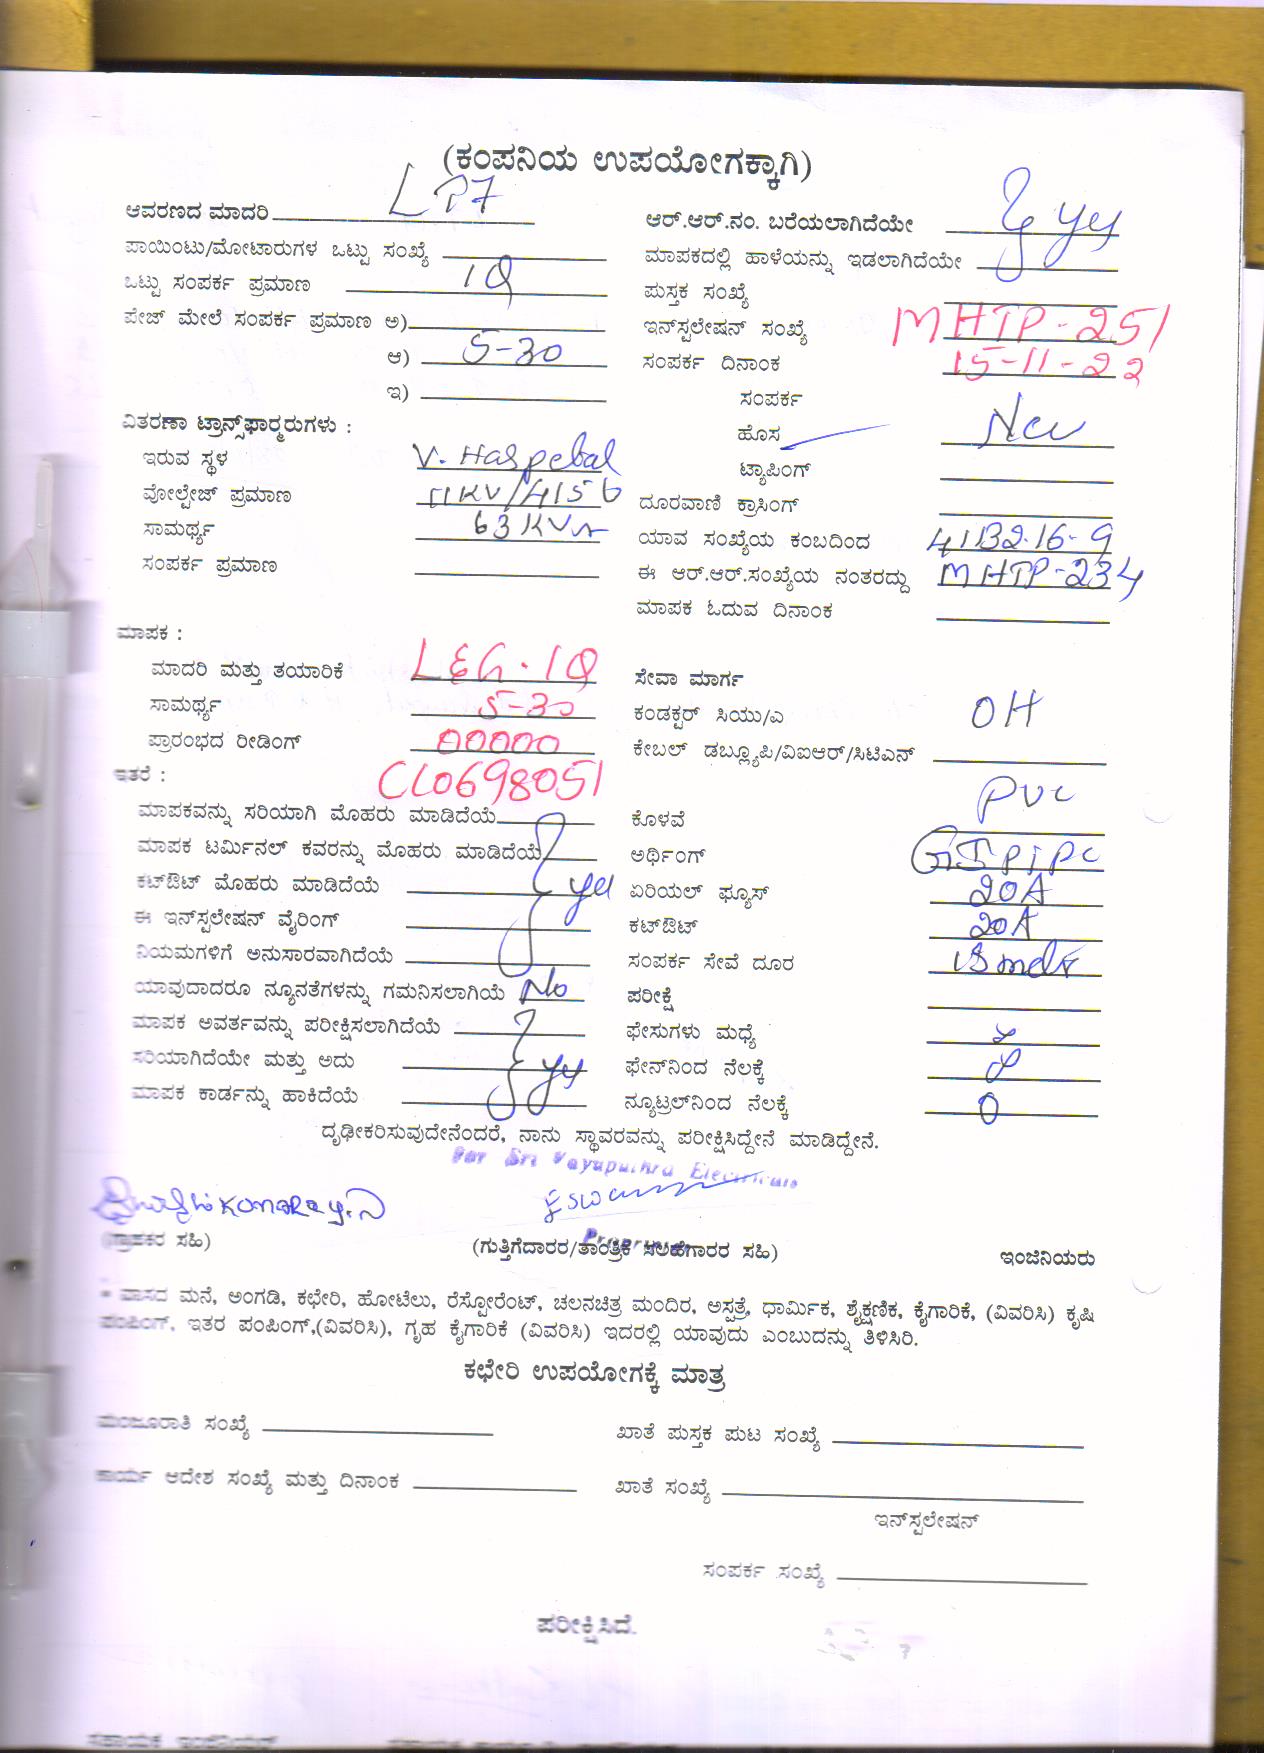 (ಕಂಪನಿಯ ಉಪಯೋಗಕ್ಕಾಗಿ)
ಆವರಣದ ಮಾದರಿ LT7
ಪಾಯಿಂಟು/ಮೋಟಾರುಗಳ ಒಟ್ಟು ಸಂಖ್ಯೆ
ಒಟ್ಟು ಸಂಪರ್ಕ ಪ್ರಮಾಣ 1Q
ಪೇಜ್ ಮೇಲೆ ಸಂಪರ್ಕ ಪ್ರಮಾಣ ಅ)
ಆ) 5-30
ಇ)
ವಿತರಣಾ ಟ್ರಾನ್ಸ್‌ಫಾರ್ಮರುಗಳು :
ಇರುವ ಸ್ಥಳ
ವೋಲ್ಟೇಜ್ ಪ್ರಮಾಣ 11KV/415
ಸಾಮರ್ಥ್ಯ 63KVA
ಸಂಪರ್ಕ ಪ್ರಮಾಣ
ಮಾಪಕ :
ಮಾದರಿ ಮತ್ತು ತಯಾರಿಕೆ L&G-1Q
ಸಾಮರ್ಥ್ಯ 5-30
ಪ್ರಾರಂಭದ ರೀಡಿಂಗ್ 00000
ಇತರೆ : CL0698051
ಮಾಪಕವನ್ನು ಸರಿಯಾಗಿ ಮೊಹರು ಮಾಡಿದೆಯೆ
ಮಾಪಕ ಟರ್ಮಿನಲ್ ಕವರನ್ನು ಮೊಹರು ಮಾಡಿದೆಯೆ
ಕಟ್‌ಔಟ್ ಮೊಹರು ಮಾಡಿದೆಯೆ yes
ಈ ಇನ್‌ಸ್ಟಲೇಷನ್ ವೈರಿಂಗ್
ನಿಯಮಗಳಿಗೆ ಅನುಸಾರವಾಗಿದೆಯೆ
ಯಾವುದಾದರೂ ನ್ಯೂನತೆಗಳನ್ನು ಗಮನಿಸಲಾಗಿಯೆ No
ಮಾಪಕ ಅವರ್ತವನ್ನು ಪರೀಕ್ಷಿಸಲಾಗಿದೆಯೆ
ಸರಿಯಾಗಿದೆಯೇ ಮತ್ತು ಅದು yes
ಮಾಪಕ ಕಾರ್ಡನ್ನು ಹಾಕಿದೆಯೆ
ಆರ್.ಆರ್.ನಂ. ಬರೆಯಲಾಗಿದೆಯೇ yes
ಮಾಪಕದಲ್ಲಿ ಹಾಳೆಯನ್ನು ಇಡಲಾಗಿದೆಯೇ
ಪುಸ್ತಕ ಸಂಖ್ಯೆ
ಇನ್‌ಸ್ಟಲೇಷನ್ ಸಂಖ್ಯೆ MHTP-251
ಸಂಪರ್ಕ ದಿನಾಂಕ 15-11-22
ಸಂಪರ್ಕ
ಹೊಸ New
ಟ್ಯಾಪಿಂಗ್
ದೂರವಾಣಿ ಕ್ರಾಸಿಂಗ್
ಯಾವ ಸಂಖ್ಯೆಯ ಕಂಬದಿಂದ
ಈ ಆರ್.ಆರ್.ಸಂಖ್ಯೆಯ ನಂತರದ್ದು MHTP-234
ಮಾಪಕ ಓದುವ ದಿನಾಂಕ
ಸೇವಾ ಮಾರ್ಗ
ಕಂಡಕ್ಟರ್ ಸಿಯು/ಎ OH
ಕೇಬಲ್ ಡಬ್ಲ್ಯೂಪಿ/ವಿಐಆರ್/ಸಿಟಿಎನ್
ಕೊಳವೆ PVC
ಅರ್ಥಿಂಗ್ GI Pipe
ಏರಿಯಲ್ ಫ್ಯೂಸ್ 20A
ಕಟ್‌ಔಟ್ 20A
ಸಂಪರ್ಕ ಸೇವೆ ದೂರ
ಪರೀಕ್ಷೆ
ಫೇಸುಗಳು ಮಧ್ಯೆ
ಫೇನ್‌ನಿಂದ ನೆಲಕ್ಕೆ
ನ್ಯೂಟ್ರಲ್‌ನಿಂದ ನೆಲಕ್ಕೆ 0
ದೃಢೀಕರಿಸುವುದೇನೆಂದರೆ, ನಾನು ಸ್ಥಾವರವನ್ನು ಪರೀಕ್ಷಿಸಿದ್ದೇನೆ ಮಾಡಿದ್ದೇನೆ.
For Sri Vayuputhra Electricals
Proprietor
(ಗ್ರಾಹಕರ ಸಹಿ) (ಗುತ್ತಿಗೆದಾರರ/ತಾಂತ್ರಿಕ ಸಲಹೆಗಾರರ ಸಹಿ) ಇಂಜಿನಿಯರು
* ವಾಸದ ಮನೆ, ಅಂಗಡಿ, ಕಛೇರಿ, ಹೋಟೆಲು, ರೆಸ್ಟೋರೆಂಟ್, ಚಲನಚಿತ್ರ ಮಂದಿರ, ಅಸ್ಪತ್ರೆ, ಧಾರ್ಮಿಕ, ಶೈಕ್ಷಣಿಕ, ಕೈಗಾರಿಕೆ, (ವಿವರಿಸಿ) ಕೃಷಿ
ಪಂಪಿಂಗ್, ಇತರ ಪಂಪಿಂಗ್,(ವಿವರಿಸಿ), ಗೃಹ ಕೈಗಾರಿಕೆ (ವಿವರಿಸಿ) ಇದರಲ್ಲಿ ಯಾವುದು ಎಂಬುದನ್ನು ತಿಳಿಸಿರಿ.
ಕಛೇರಿ ಉಪಯೋಗಕ್ಕೆ ಮಾತ್ರ
ಮಂಜೂರಾತಿ ಸಂಖ್ಯೆ ಖಾತೆ ಪುಸ್ತಕ ಪುಟ ಸಂಖ್ಯೆ
ಕಾರ್ಯ ಆದೇಶ ಸಂಖ್ಯೆ ಮತ್ತು ದಿನಾಂಕ ಖಾತೆ ಸಂಖ್ಯೆ
ಇನ್‌ಸ್ಟಲೇಷನ್
ಸಂಪರ್ಕ ಸಂಖ್ಯೆ
ಪರೀಕ್ಷಿಸಿದೆ.